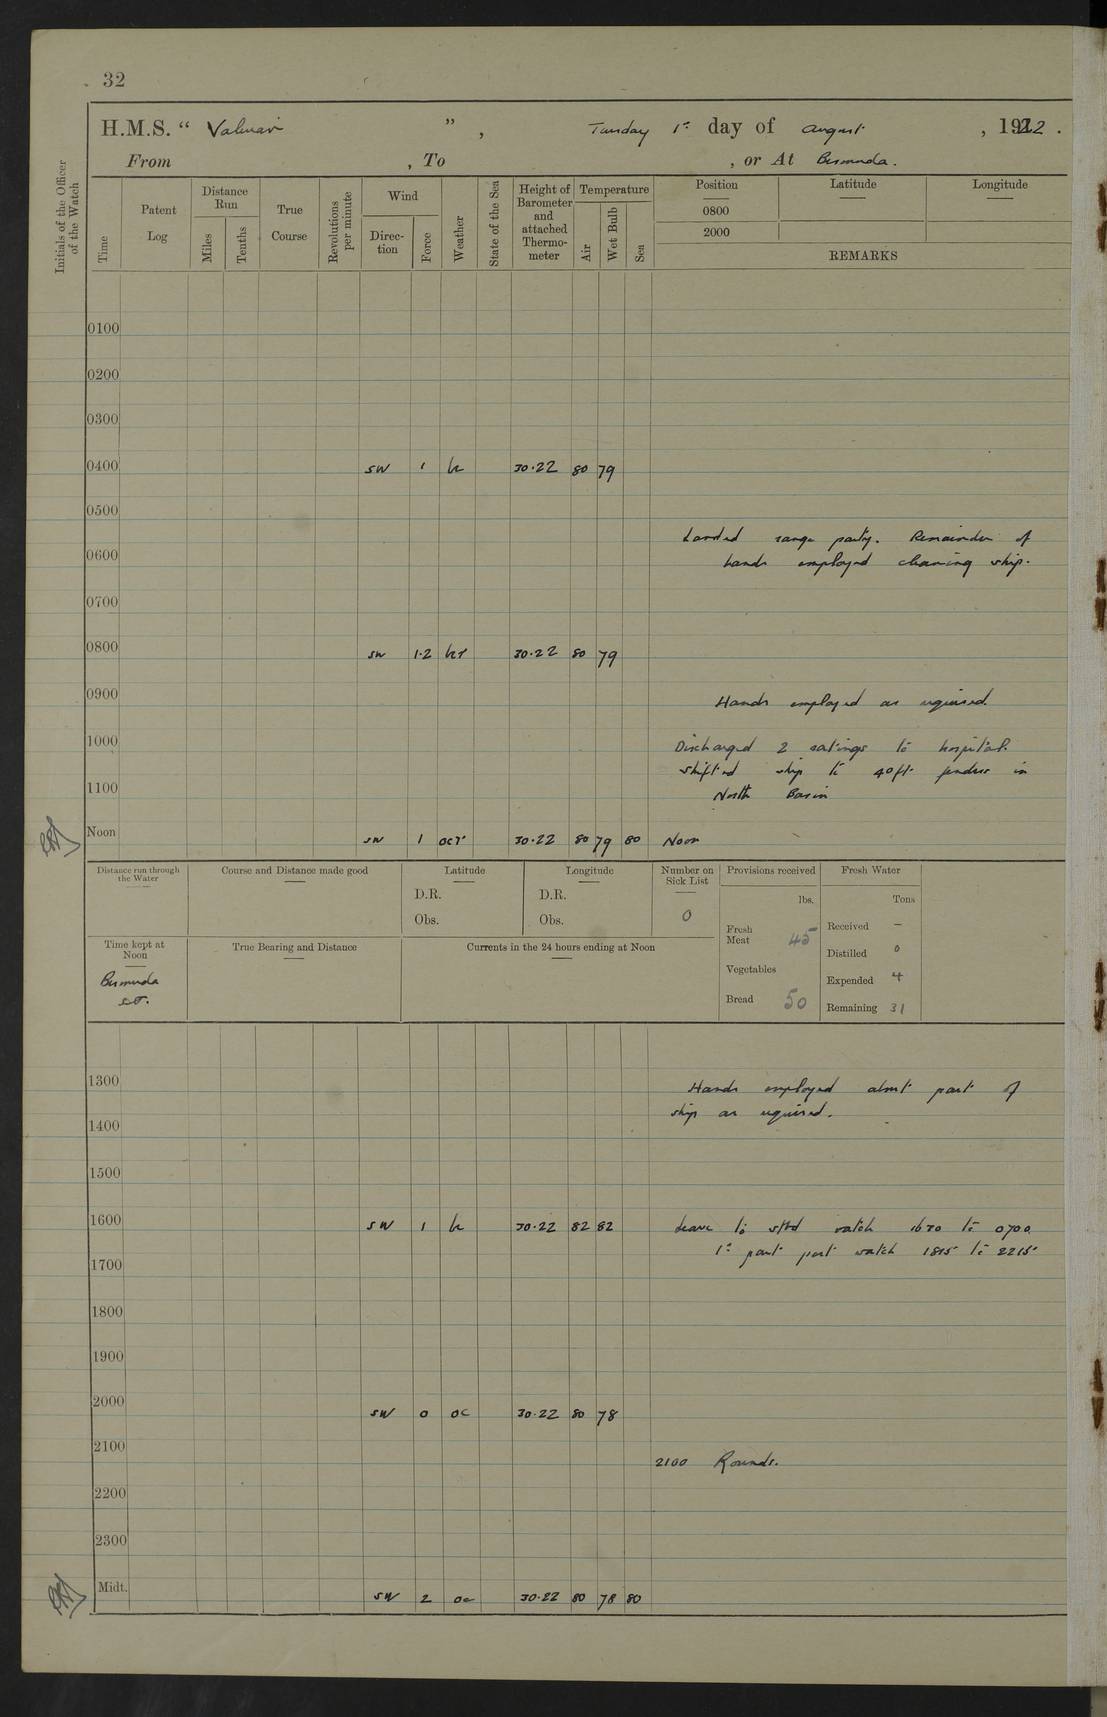 32
H.M.S. “ Valerian ” , Tuesday 1st day of August , 1922 .
From , To , or At Bermuda.
Initials of the Officer of the Watch
Time
Patent Log
Distance Run
Miles
Tenths
True Course
Revolutions per minute
Wind
Direc-tion
Force
Weather
State of the Sea
Height of Barometer and attached Thermo-meter
Temperature
Air
Wet Bulb
Sea
Position
Latitude
Longitude
0800
2000
REMARKS
0100
0200
0300
0400 SW 1 30.22 80 79
0500
Landed range party. Remainder of
0600
hands employed cleaning ship.
0700
0800 SW 1.2 30.22 80 79
0900
Hands employed as required.
1000
Discharged 2 ratings to hospital.
Shifted ship to 40ft fenders in
1100
North Basin
Noon SW 1 ocr 30.22 80 79 80 Noon
Distance run through the Water
Course and Distance made good
Latitude
D.R.
Obs.
Longitude
D.R.
Obs.
Number on Sick List
0
Provisions received
lbs.
Fresh Meat 45
Vegetables
Bread 50
Fresh Water
Tons
Received –
Distilled 0
Expended 4
Remaining 31
Time kept at Noon
Bermuda
S.T.
True Bearing and Distance
Currents in the 24 hours ending at Noon
1300
Hands employed about part of
ship as required.
1400
1500
1600 SW 1 30.22 82 82 Leave to stbd watch 1630 to 0700
1st part port watch 1815 to 2215
1700
1800
1900
2000 SW 0 oc 30.22 80 78
2100
2100 Rounds.
2200
2300
Midt. SW 2 oc 30.22 80 78 80